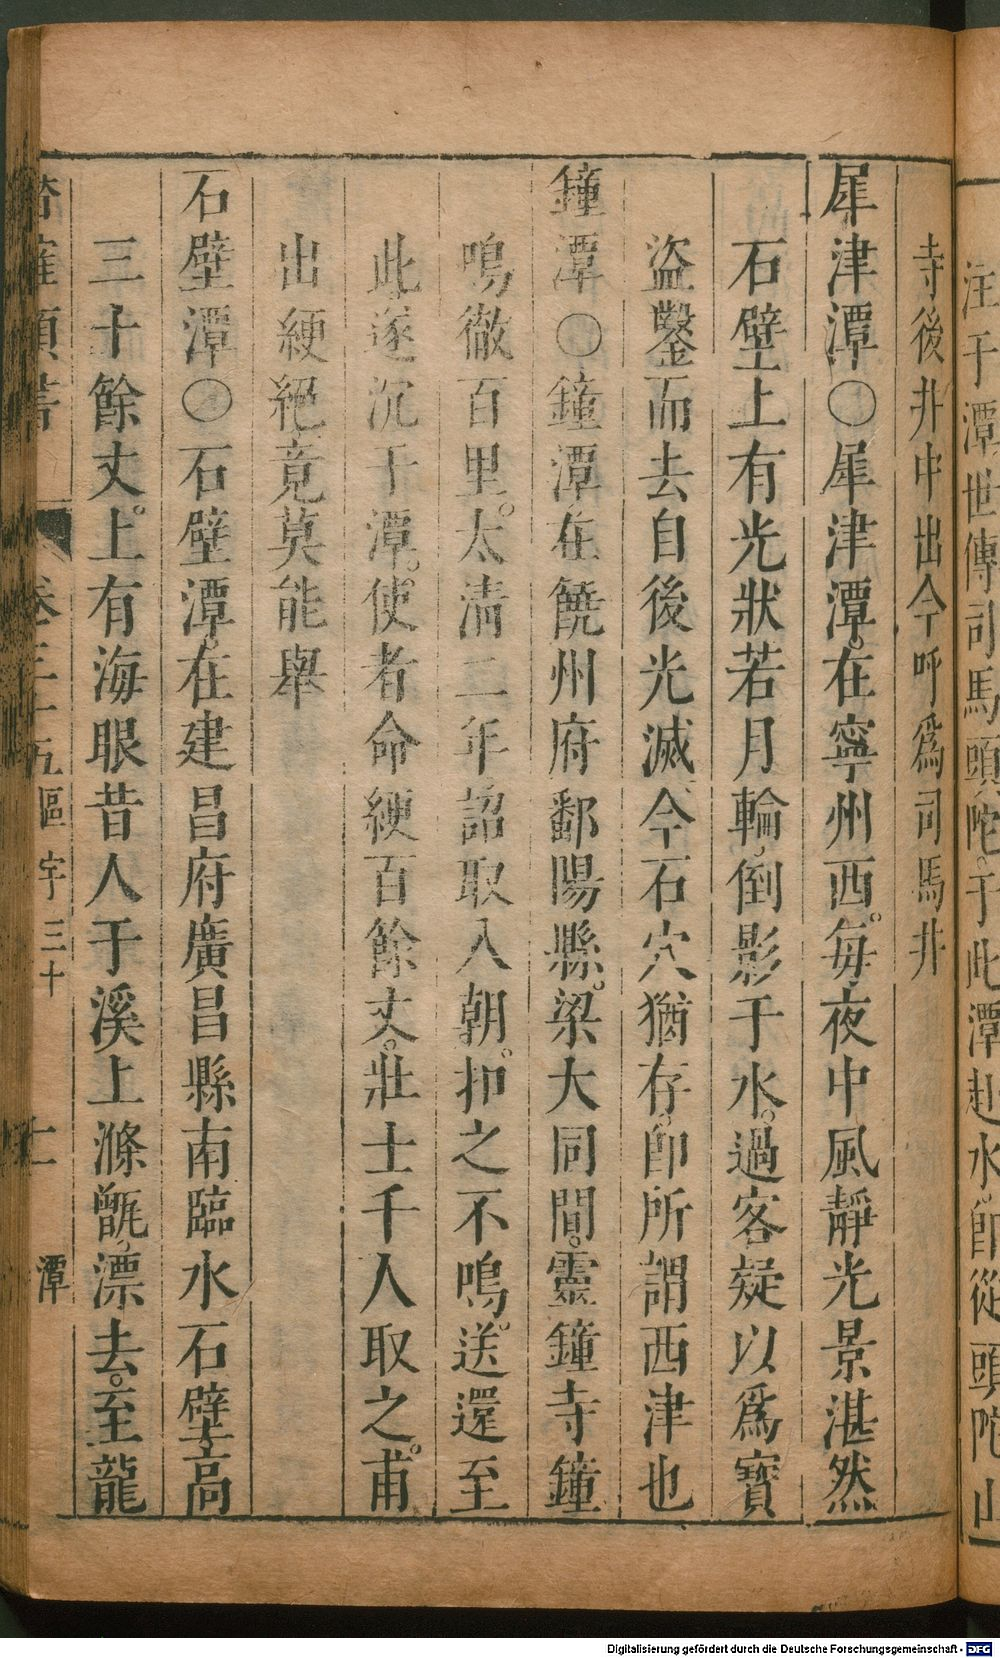 注于潭世傳司馬頭陀。于此潭赴水卽從頭陀山
寺後井中出今呼爲司馬井
犀津潭○犀津潭。在寧州西。每夜中風靜光景湛然
石壁上有光狀若月輪倒影于水。過客疑以爲寶
盜鑿而去自後光滅今石穴猶存。卽所謂西津也
鐘潭○鐘潭在饒州府鄱陽縣。梁大同間。靈鐘寺鐘
鳴徹百里。太淸二年詔取入朝。扣之不鳴。送還至
此遂沉于潭。使者命綆百餘丈。壯士千人取之。甫
出綆絕竟莫能舉
石壁潭○石壁潭。在建昌府廣昌縣南臨水石壁高
三十餘丈。上有海眼昔人于溪上滌甑漂去。至龍
類書 卷三十五區宇三十 潭
Digitalisierung gefördert durch die Deutsche Forschungsgemeinschaft - DFG